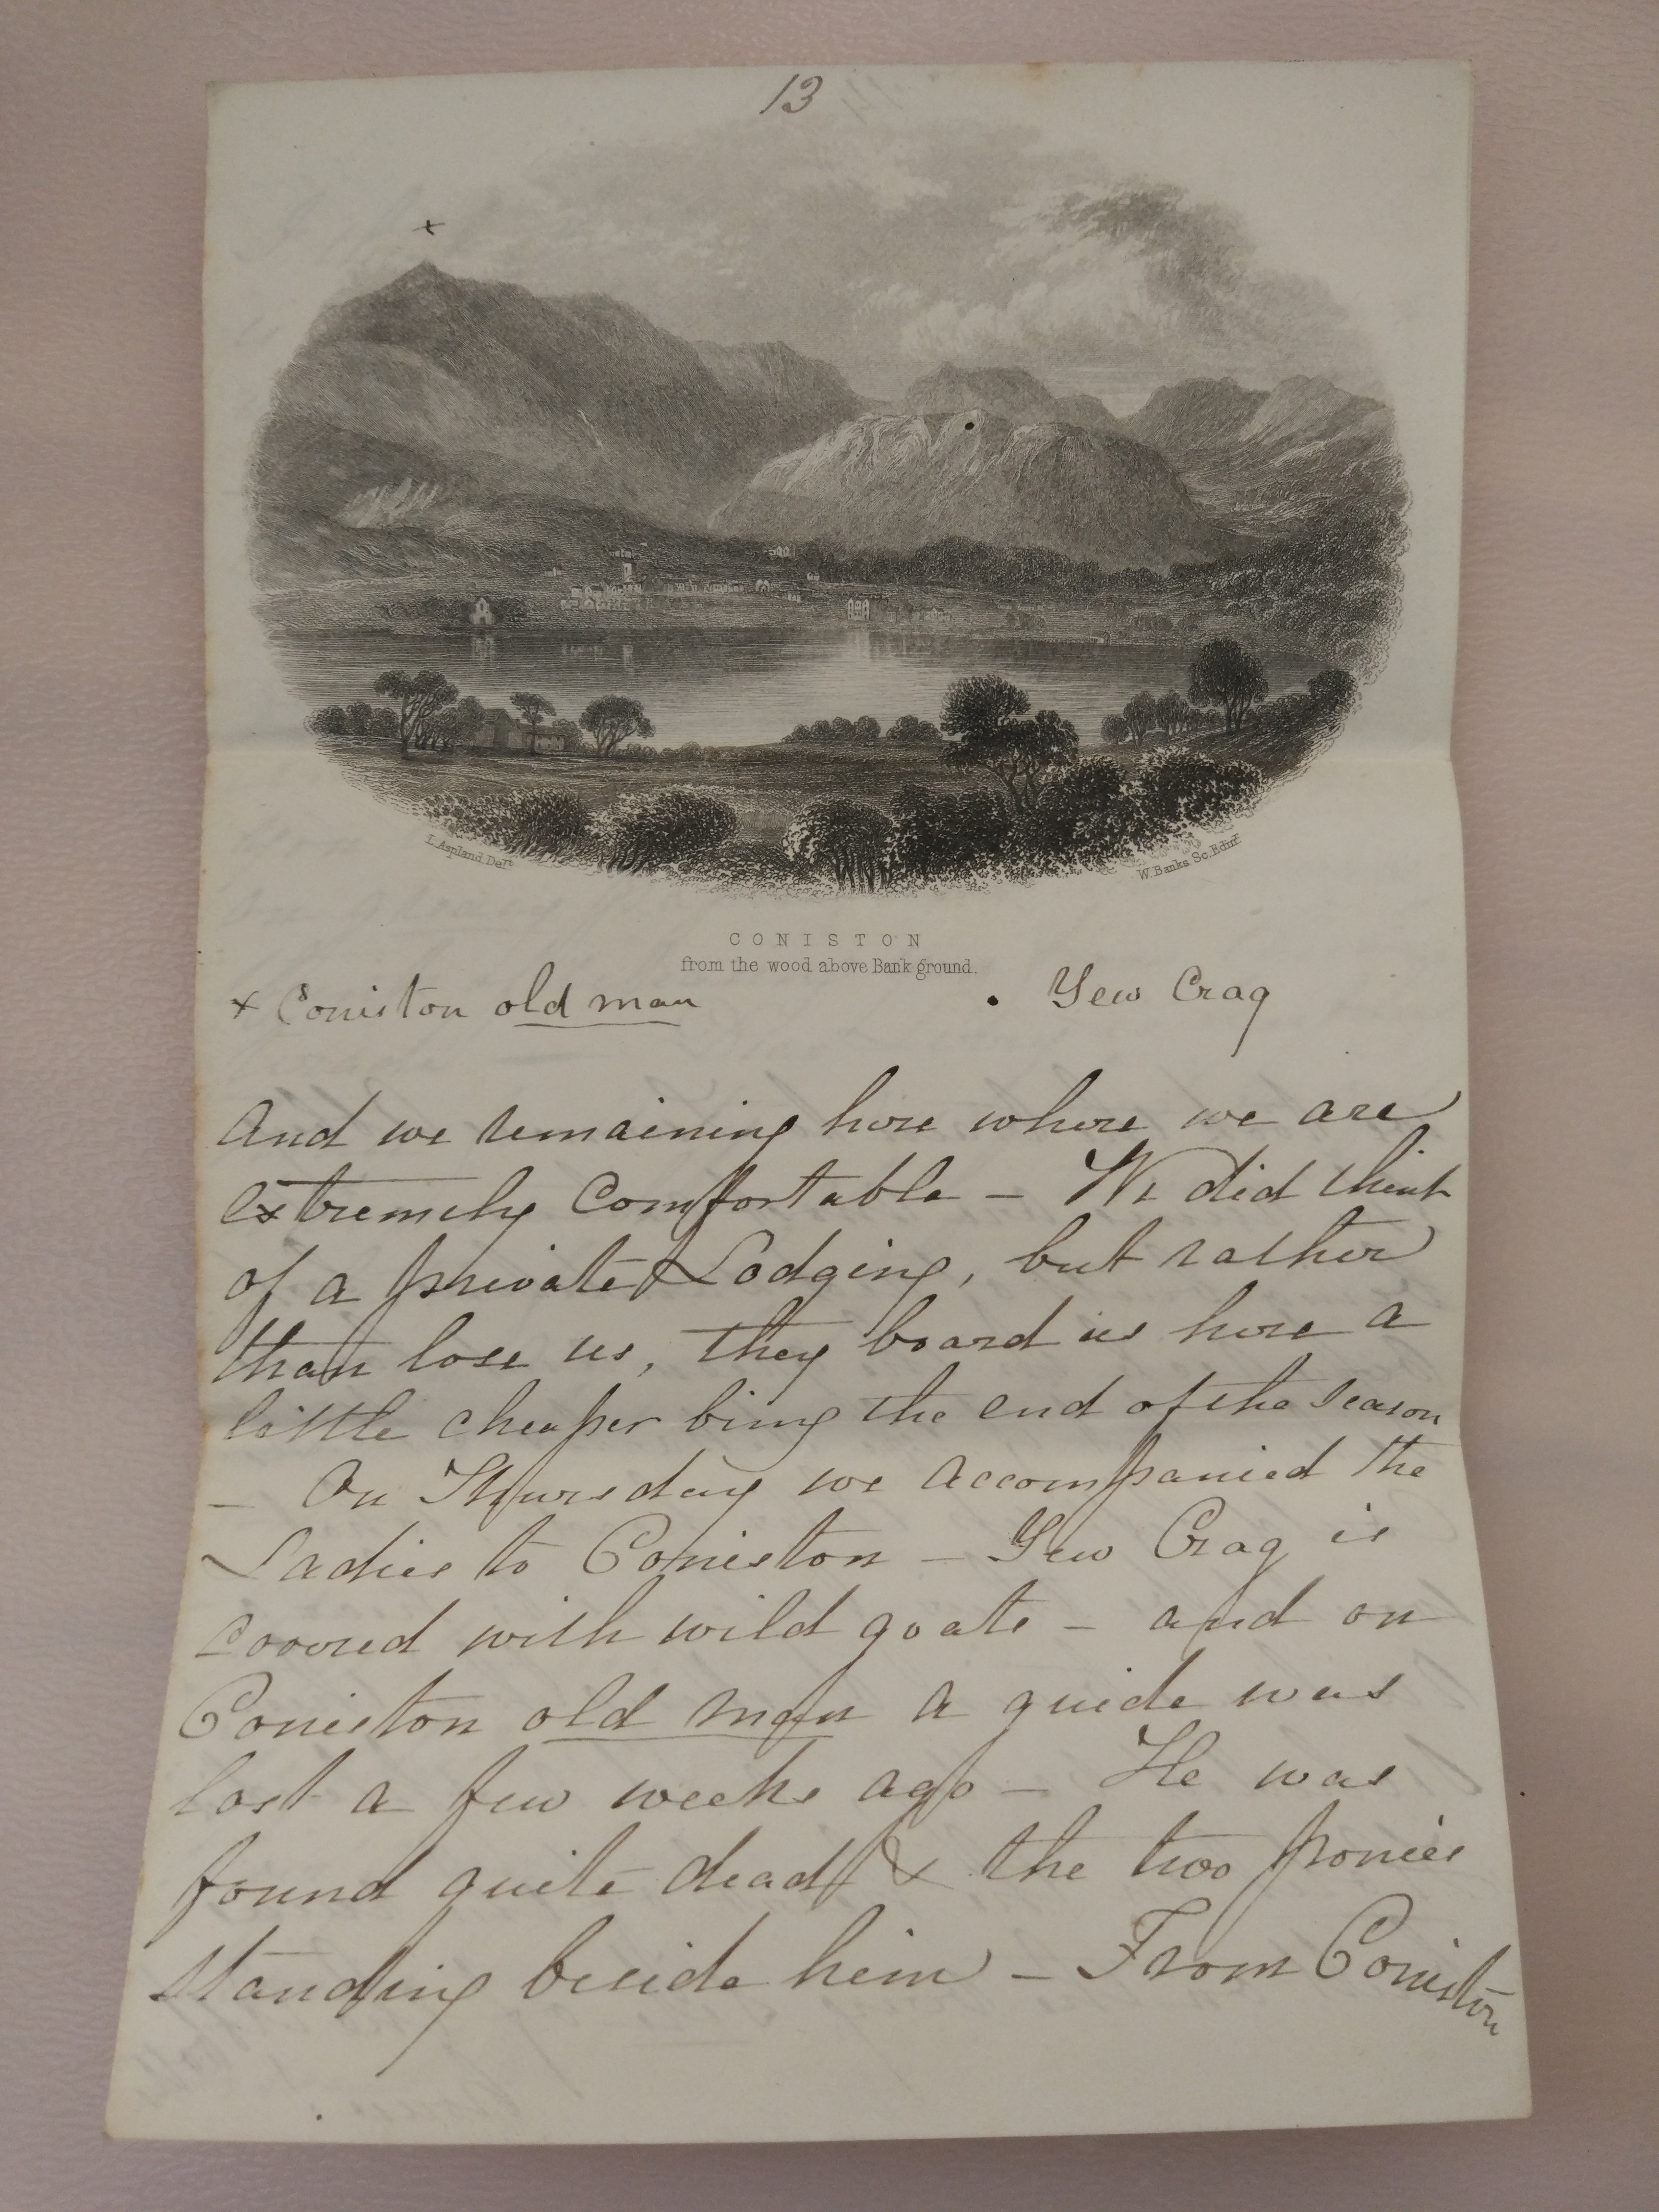 13
x
L. Aspland Delt.
W. Banks Sc. Edinr.
CONISTON
from the wood above Bank ground.
x Coniston old man . Yew Crag
And we remaining here where we are
extremely Comfortable – We did think
of a private Lodging, but rather
than lose us, they board us here a
little cheaper being the end of the season
– On Thursday we accompanied the
Ladies to Coniston – Yew Crag is
covered with wild goats – and on
Coniston old man a guide was
lost a few weeks ago – He was
found quite dead & the two ponies
standing beside him – From Coniston